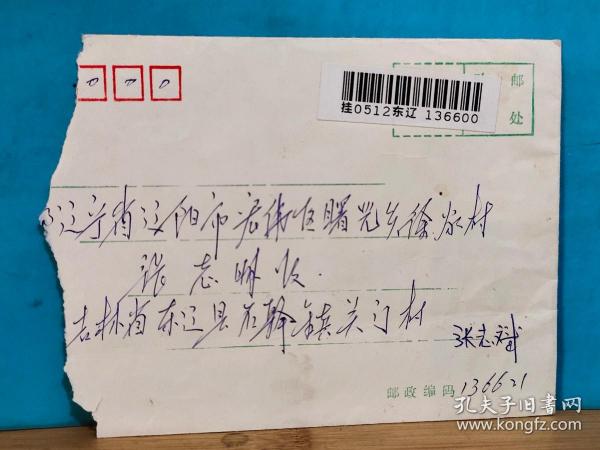 0 0 0
邮
处
挂0512东辽 136600
辽宁省辽阳市宏伟区曙光乡徐家村
张志 收.
吉林省东辽县 镇关门村
张志斌
邮政编码 136621
孔夫子旧书网
www.kongfz.com